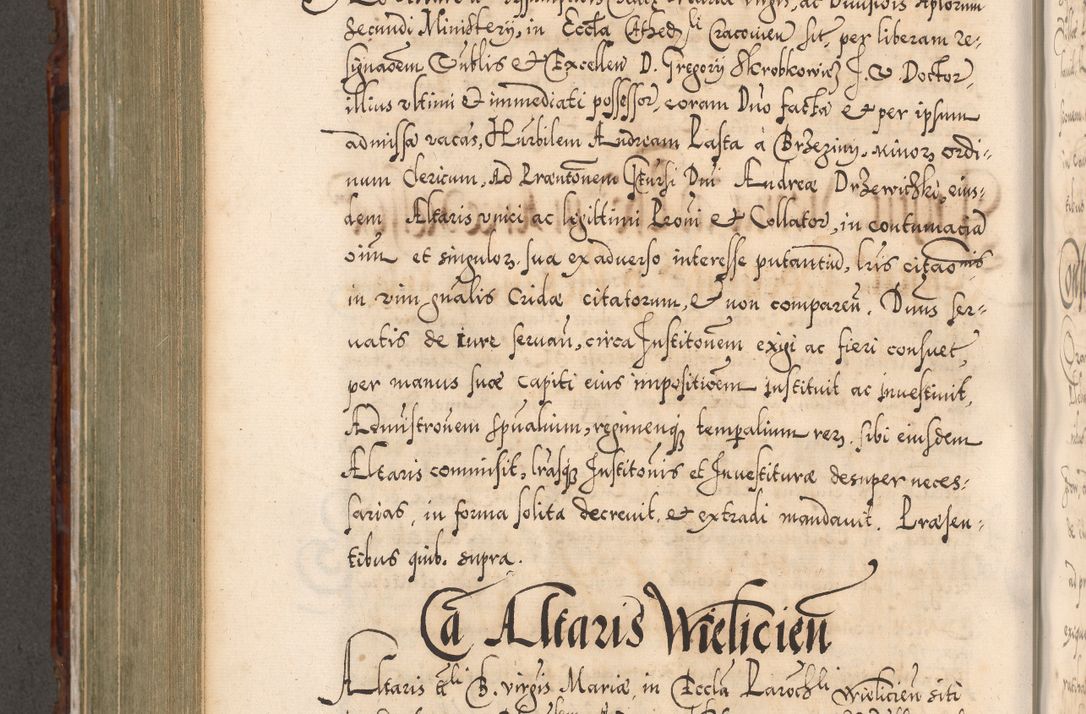 Secundi Ministery, in Eccła Cathedli Cracovien sit, per liberam re-
signaõem Nublis et Excellen D. Gregory Skrobkowicz J. V. Doctor,
illius vltimi et immediati possessor, coram Dno facta et per ipsum
admissa vacan, Hnrbilem Andream Pasta à Brzeziny, minor ordi-
num Clericum, Ad Præntõnem Gnrsi Dni Andreæ Drzewichki, eius-
dem Altaris vnici ac legittimi Proni et Collator, in contumaciã
oium et singulor, sua ex adverso interesse putantiũ, lris citaõnis
in vim gnalis Cridæ citatorum, et non compareñ. Dnus ser-
vatis de iure servañ, circa Institonem exigi ac fieri consuet,
per manus suæ capiti eius impositioem instituit ac investivit,
Admistronem spualium, regimenq temporalium rer, sibi eiusdem
Altaris commisit, lrasq Institonis et Investituræ desuper neces-
sarias, in forma solita decrevit, et extradi mandavit. Præsen-
tibus quib. supra.
Ca Altaris Wielicień
Altaris tli B. virgis Mariæ, in Eccla Parochli Wielicień siti